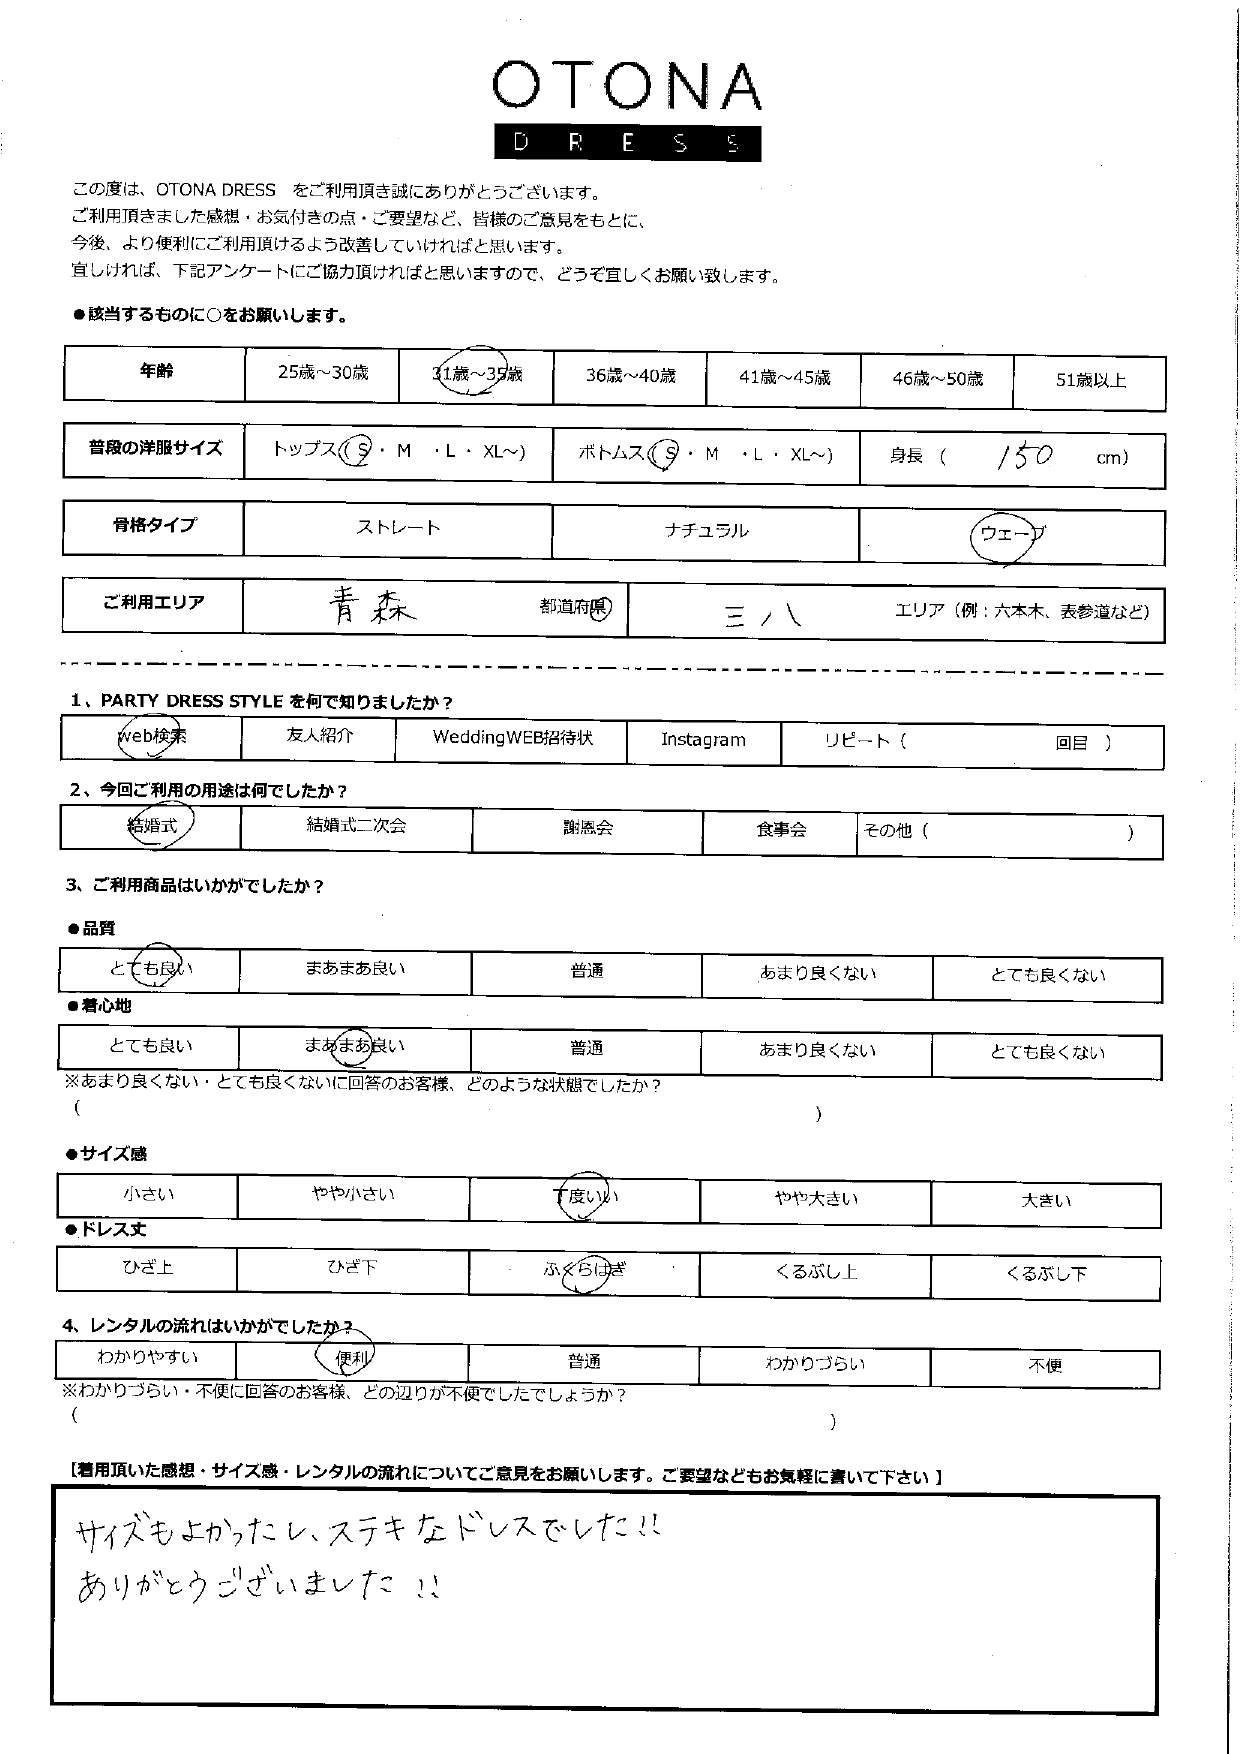 OTONA
DRESS
この度は、OTONA DRESS　をご利用頂き誠にありがとうございます。
ご利用頂きました感想・お気付きの点・ご要望など、皆様のご意見をもとに、
今後、より便利にご利用頂けるよう改善していければと思います。
宜しければ、下記アンケートにご協力頂ければと思いますので、どうぞ宜しくお願い致します。
●該当するものに○をお願いします。
年齢 25歳～30歳 31歳～35歳 36歳～40歳 41歳～45歳 46歳～50歳 51歳以上
普段の洋服サイズ トップス(S・M ・L・XL～) ボトムス(S・M ・L・XL～) 身長（ 150 cm）
骨格タイプ ストレート ナチュラル ウェーブ
ご利用エリア 青森 都道府県 三ノ八 エリア（例：六本木、表参道など）
1、PARTY DRESS STYLE を何で知りましたか？
web検索 友人紹介 WeddingWEB招待状 Instagram リピート（ 回目 ）
2、今回ご利用の用途は何でしたか？
結婚式 結婚式二次会 謝恩会 食事会 その他（ ）
3、ご利用商品はいかがでしたか？
●品質
とても良い まあまあ良い 普通 あまり良くない とても良くない
●着心地
とても良い まあまあ良い 普通 あまり良くない とても良くない
※あまり良くない・とても良くないに回答のお客様、どのような状態でしたか？
（ ）
●サイズ感
小さい やや小さい 丁度いい やや大きい 大きい
●ドレス丈
ひざ上 ひざ下 ふくらはぎ くるぶし上 くるぶし下
4、レンタルの流れはいかがでしたか？
わかりやすい 便利 普通 わかりづらい 不便
※わかりづらい・不便に回答のお客様、どの辺りが不便でしたでしょうか？
（ ）
【着用頂いた感想・サイズ感・レンタルの流れについてご意見をお願いします。ご要望などもお気軽に書いて下さい】
サイズもよかったし、ステキなドレスでした!!
ありがとうございました!!